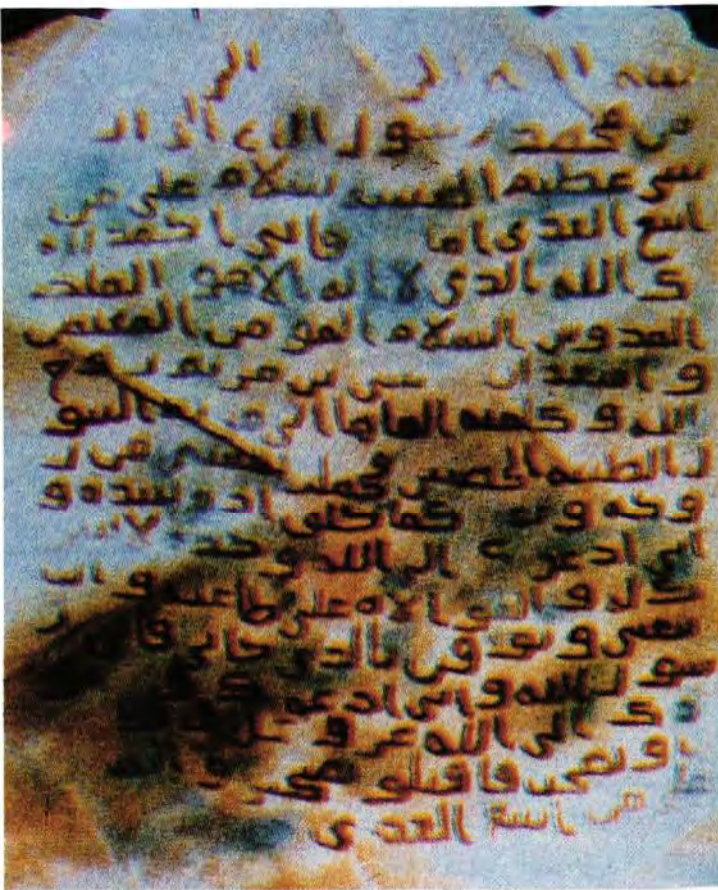 بسم الله
من محمد رسول الله الى ا
شي عظيم الحبشة سلام على من
اتبع الهدى اما فاني احمد الي
ك الله الذي لا اله الا هو الملك
القدوس السلام المومن المهيمن
و اشهد ان عيسى بن مريم روح
الله و كلمته القاها الى مريم البتو
ل الطيبة الحصينة فحملت بعيسى من ر
وحه و كما خلق ادم بيده و
اني ادعوك الى الله وحده لا شر
يك له و الموالاة على طاعته و ان
تتبعني و توقن بالذي جاني فاني ر
سول الله و اني ادعوك
دك الى الله عز و جل
و نصحت فاقبلو
من اتبع الهدى